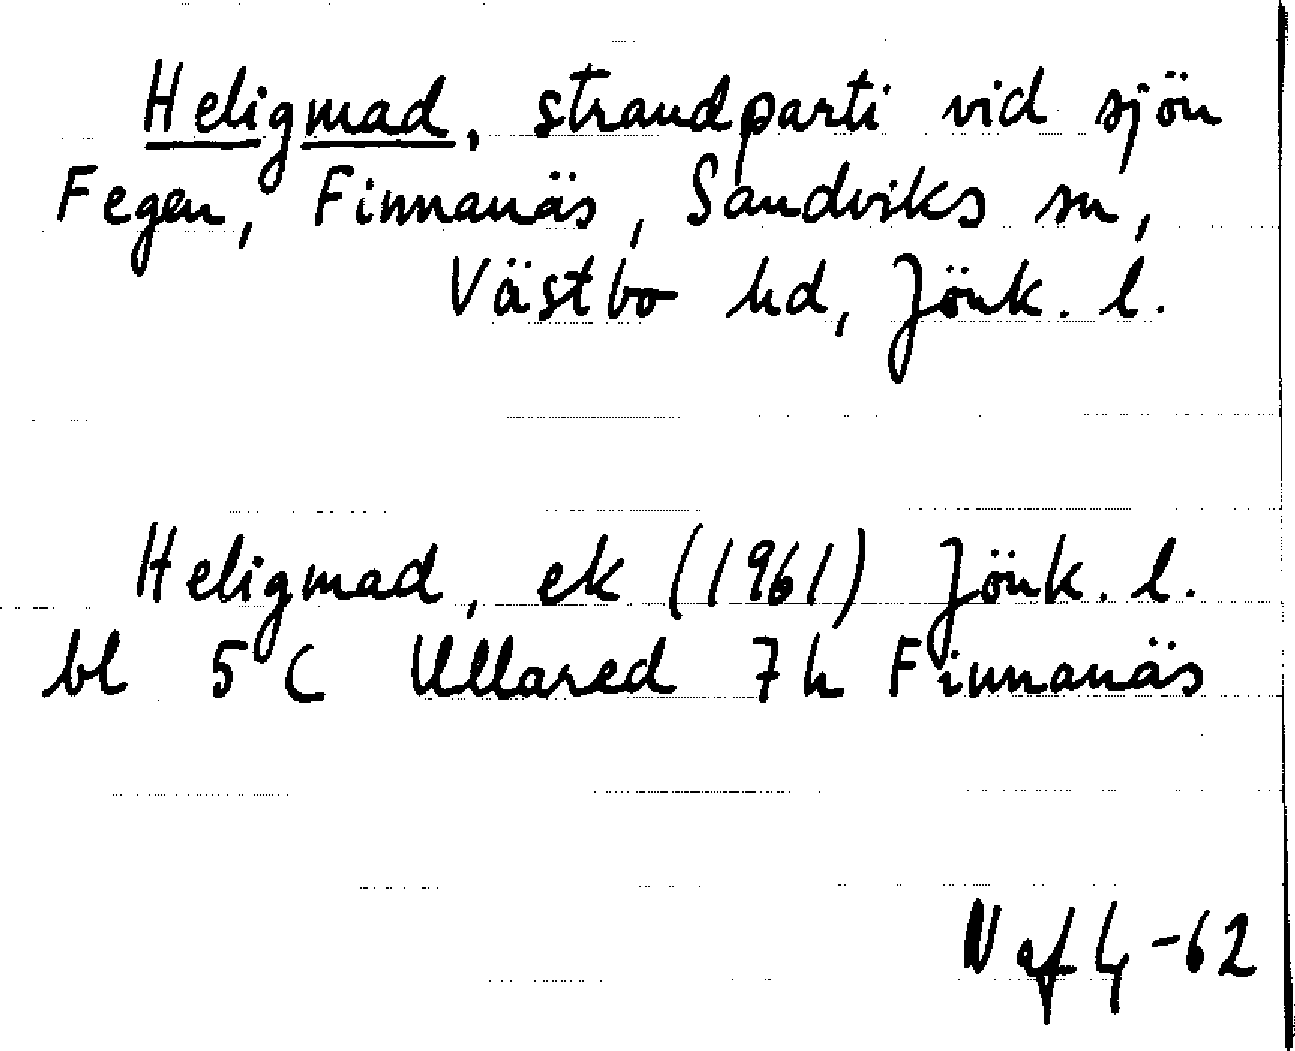 Heligmad, strandparti vid sjön
Fegen, Finnanäs, Sandviks sn,
Västbo hd, Jönk. l.
Heligmad, ek (1961) Jönk. l.
bl 5 C Ullared 7 h Finnanäs
N af 4 -62